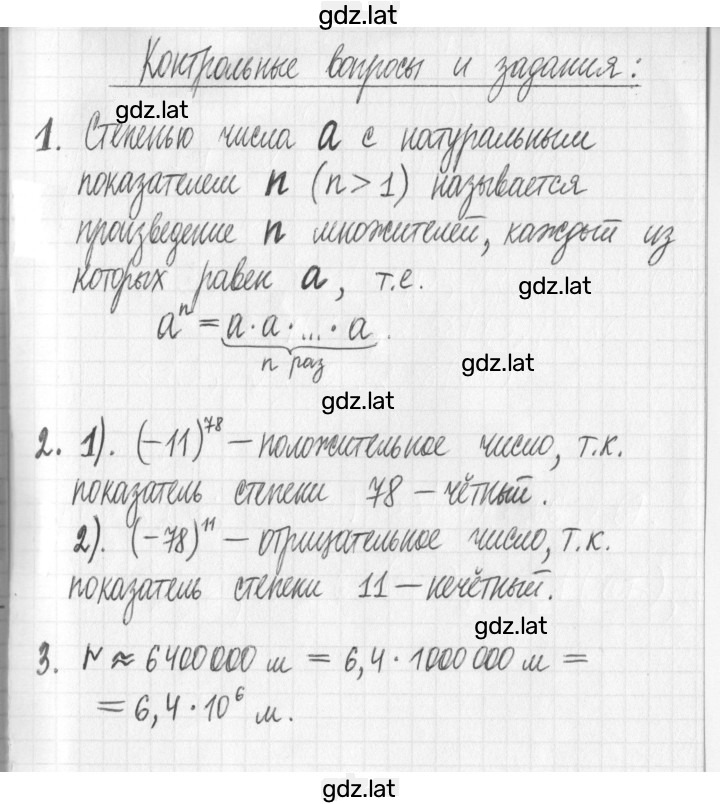 gdz.lat
Контрольные вопросы и задания:
gdz.lat
1. Степенью числа a с натуральным
показателем n (n > 1) называется
произведение n множителей, каждый из
которых равен a, т.е.
gdz.lat
aⁿ = a · a · ... · a.
n раз
gdz.lat
gdz.lat
2. 1). (-11)⁷⁸ — положительное число, т.к.
показатель степени 78 — чётный.
2). (-78)¹¹ — отрицательное число, т.к.
показатель степени 11 — нечётный.
gdz.lat
3. r ≈ 6400000 м = 6,4 · 1000000 м =
= 6,4 · 10⁶ м.
gdz.lat